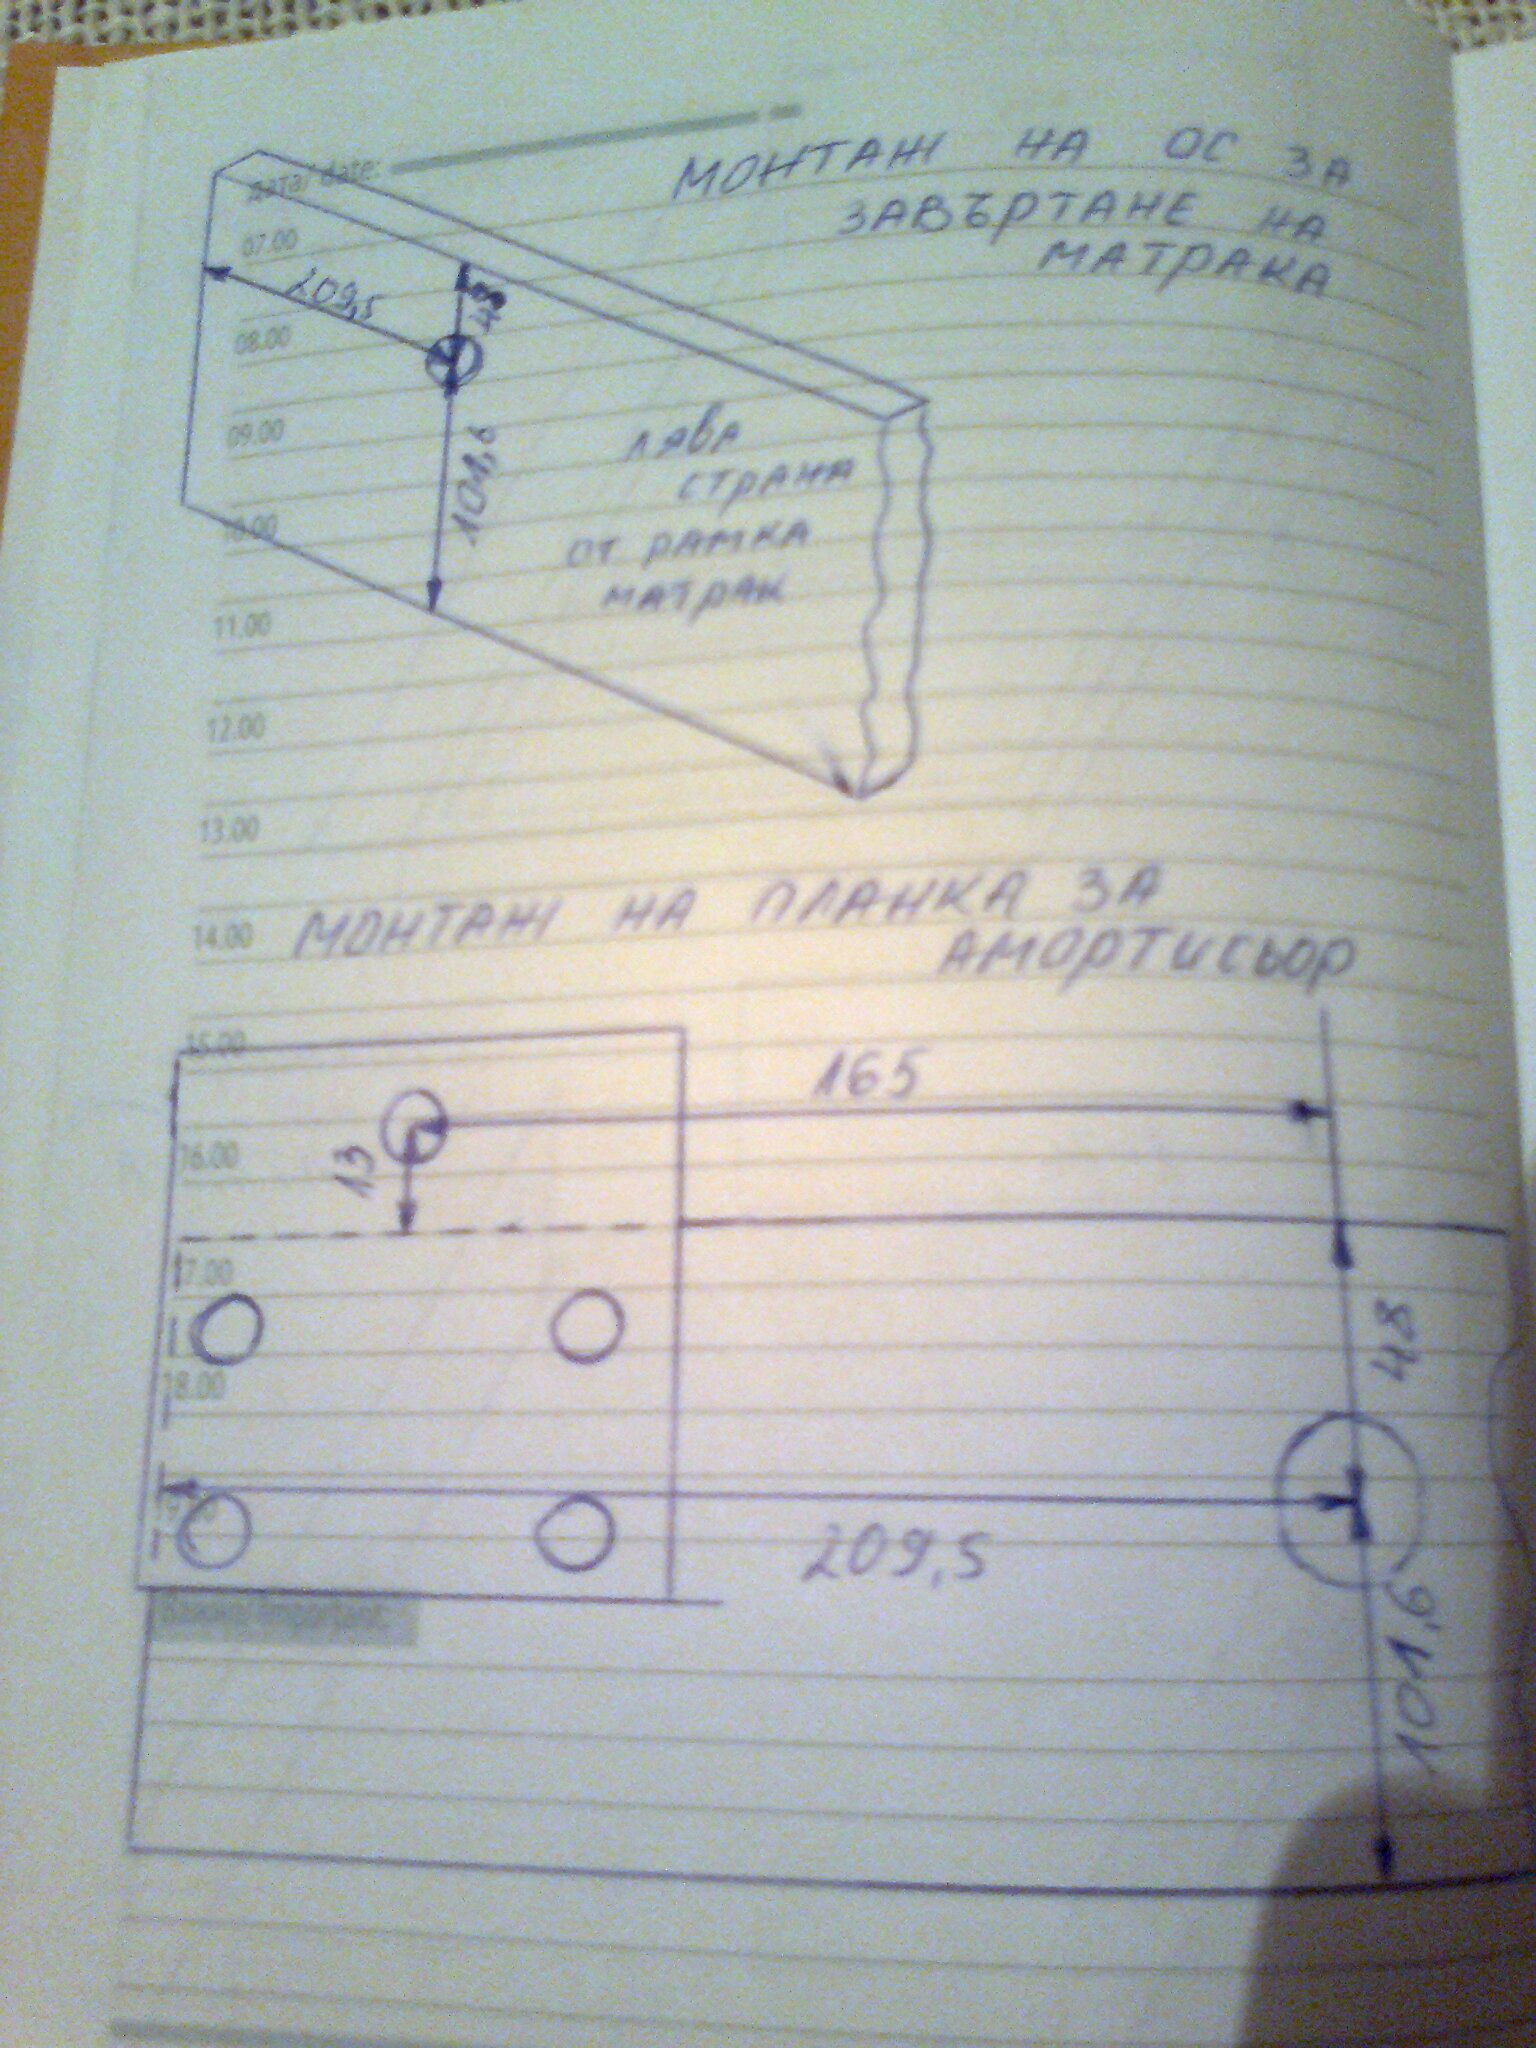 Дата/ date:
МОНТАЖ НА ОС ЗА
ЗАВЪРТАНЕ НА
МАТРАКА
07.00
209,5
48
08.00
09.00
101,6
ЛЯВА
СТРАНА
ОТ РАМКА
МАТРАК
10.00
11.00
12.00
13.00
14.00
МОНТАЖ НА ПЛАНКА ЗА
АМОРТИСЬОР
15.00
165
16.00
13
17.00
48
18.00
209,5
101,6
Важно/Important: